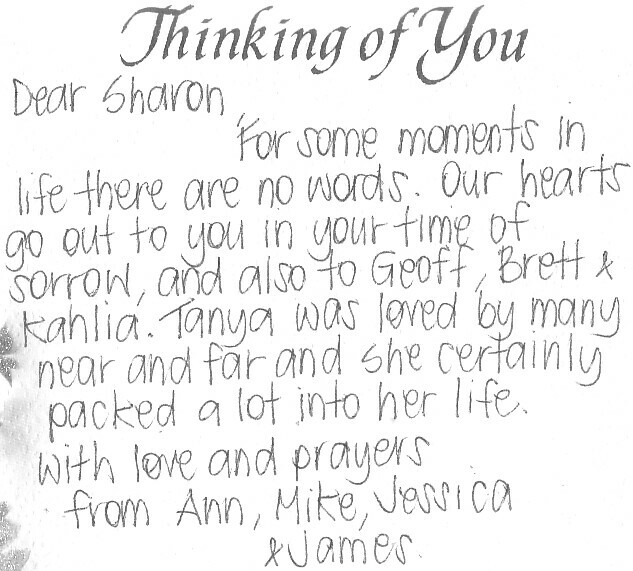 Thinking of You
Dear Sharon,
For some moments in
life there are no words. Our hearts
go out to you in your time of
sorrow, and also to Geoff, Brett &
Kahlia. Tanya was loved by many
near and far and she certainly
packed a lot into her life.
With love and prayers
from Ann, Mike, Jessica
& James.